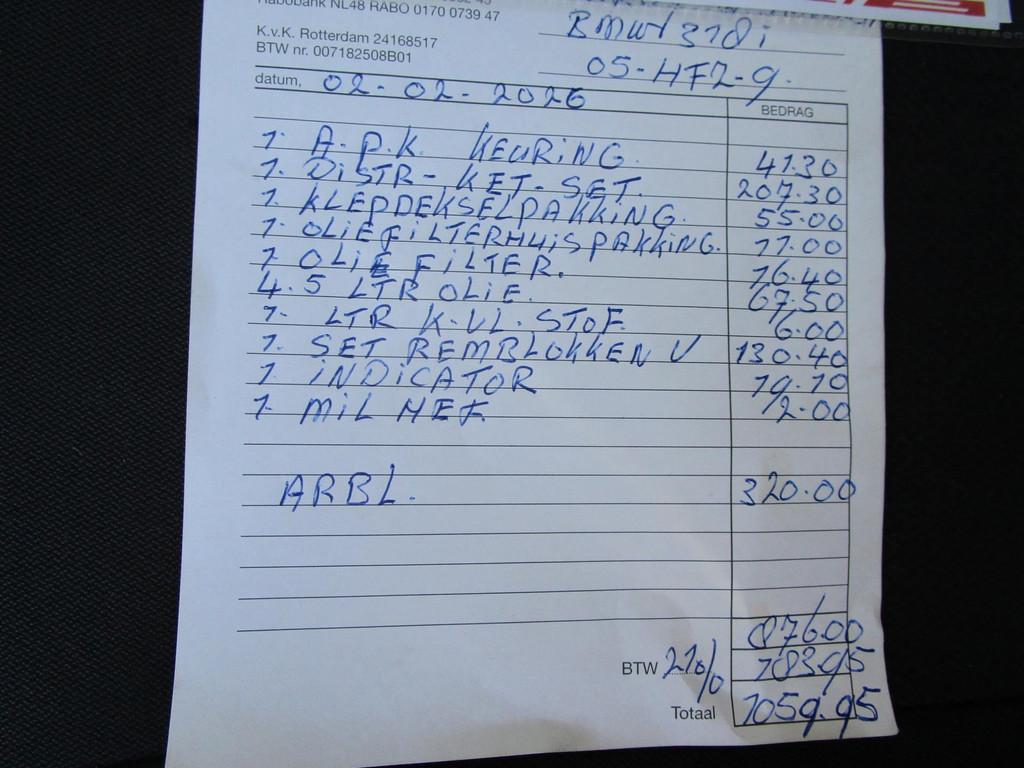 Rabobank NL48 RABO 0170 0739 47
K.v.K. Rotterdam 24168517
BTW nr. 007182508B01
BMW 318i
05-HFZ-9.
datum, 02-02-2026
BEDRAG
1. A.P.K. KEURING. 41.30
1. DISTR-KET-SET. 207.30
1 KLEPDEKSELPAKKING. 55.00
1. OLIEFILTERHUISPAKKING. 11.00
1 OLIE FILTER. 16.40
4.5 LTR OLIE. 67.50
1- LTR K.VL.STOF. 6.00
1. SET REMBLOKKEN V 130.40
1. INDICATOR 19.10
1. MIL HEF. 2.00
ARBL. 320.00
876.00
BTW 21% 183.95
Totaal 1059.95